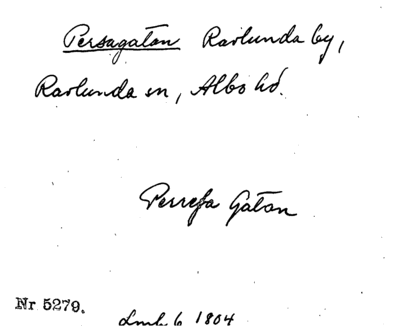 Persagatan Ravlunda by,
Ravlunda sn, Albo hd.
Perresa Gatan
Nr 5279.
Lmh 6 1804